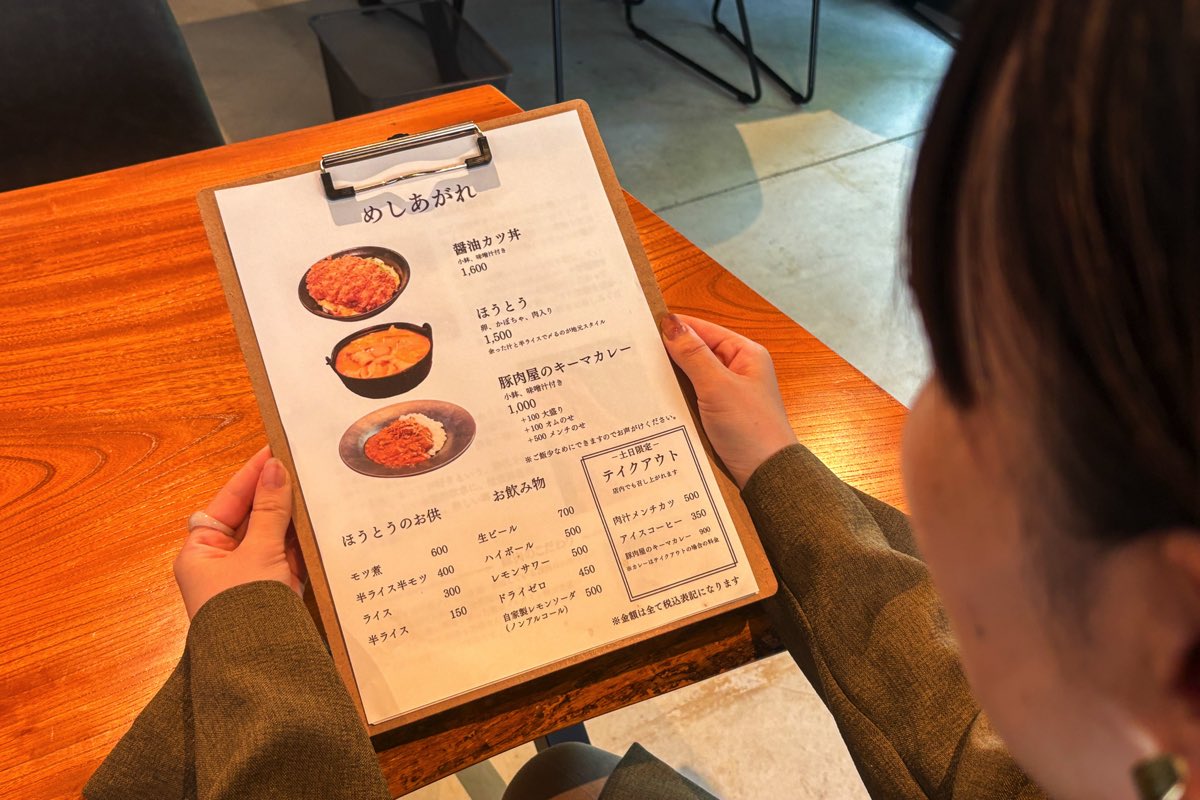 めしあがれ
醤油カツ丼
小鉢、味噌汁付き
1,600
ほうとう
卵、かぼちゃ、肉入り
1,500
余った汁と半ライスで〆るのが地元スタイル
豚肉屋のキーマカレー
小鉢、味噌汁付き
1,000
+100 大盛り
+100 オムのせ
+500 メンチのせ
※ご飯少なめにできますのでお声がけください。
ほうとうのお供
モツ煮 600
半ライス半モツ 400
ライス 300
半ライス 150
お飲み物
生ビール 700
ハイボール 500
レモンサワー 500
ドライゼロ 450
自家製レモンソーダ 500
(ノンアルコール)
−土日限定−
テイクアウト
店内でも召し上がれます
肉汁メンチカツ 500
アイスコーヒー 350
豚肉屋のキーマカレー 900
※カレーはテイクアウトの場合の料金
※金額は全て税込表記になります